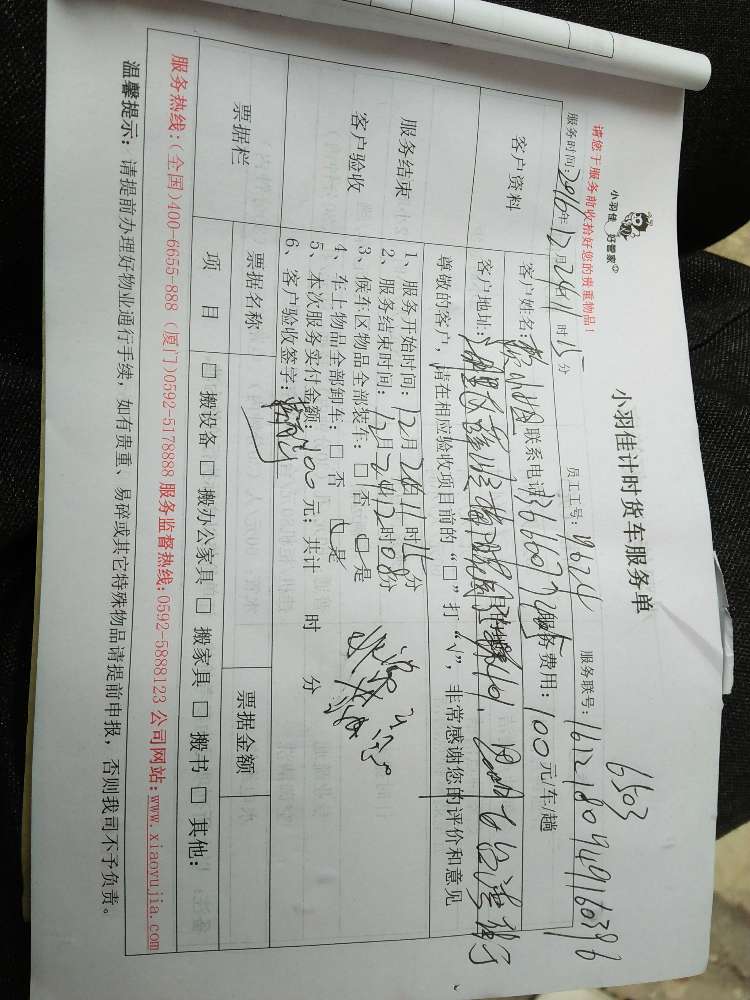 小羽佳 好管家
小羽佳计时货车服务单
6503
请您于服务前收拾好您的贵重物品!
员工工号: 7624 服务联号: 1612180949160396
服务时间: 2016年12月24日11时15分
客户资料
客户姓名: 联系电话: 服务费用: 100元/车/趟
客户地址:
尊敬的客户, 请在相应验收项目前的“□”打“√”, 非常感谢您的评价和意见
服务结束
客户验收
1、服务开始时间: 12月24日11时15分
2、服务结束时间: 12月24日12时08分
3、候车区物品全部装车: □否 □是
4、车上物品全部卸车: □否 □是
5、本次服务实付金额: 100元; 共计 时 分
6、客户验收签字:
票据栏
票据名称 票据金额
项 目 □ 搬设备 □ 搬办公家具 □ 搬家具 □ 搬书 □ 其他:
服务热线:(全国)400-6655-888 (厦门)0592-5178888 服务监督热线:0592-5888123 公司网站:www.xiaoyujia.com
温馨提示: 请提前办理好物业通行手续, 如有贵重、易碎或其它特殊物品请提前申报, 否则我司不予负责。